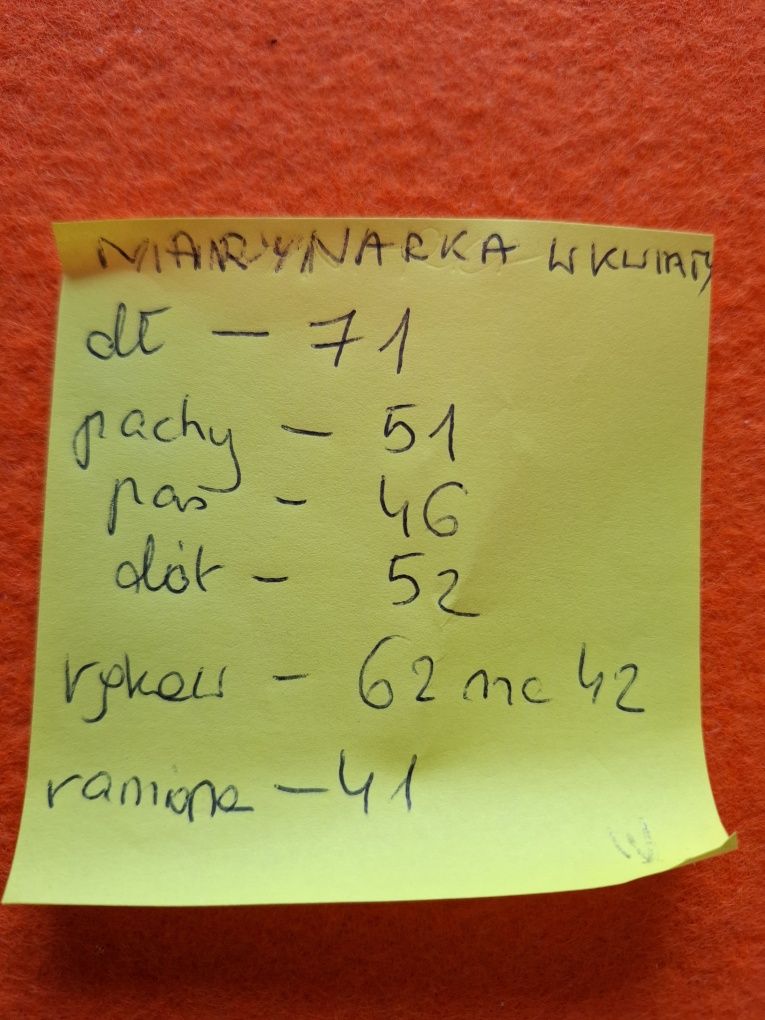 MARYNARKA W KWIATY
dł — 71
pachy — 51
pas - 46
dół - 52
rękaw - 62 na 42
ramiona - 41